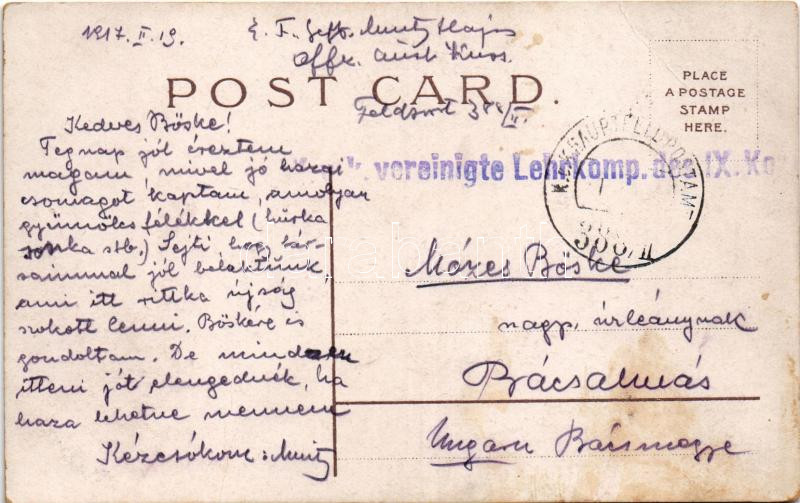 1917. II. 19.
E. F. Gefr. Muntz Hajós
Offz. Aush. Kurs.
POST CARD.
Feldpost 388/II.
PLACE
A POSTAGE
STAMP
HERE.
k. vereinigte Lehrkomp. des IX. Ko
K.u.K. HAUPTFELDPOSTAMT
388/II
Kedves Böske!
Tegnap jól éreztem
magam mivel jó hazai
csomagot kaptam, amolyan
gyümölcs félékkel (hurka
sonka stb.) Sejti hogy bár-
saimmal jól belaktunk,
ami itt ritka újság
szokott lenni. Böskére is
gondoltam. De minden
itteni jót elengednék, ha
haza lehetne mennem
Kézcsókom: Muntz
Mózes Böske
nagys. úrleánynak
Bácsalmás
Ungarn Bácsmegye